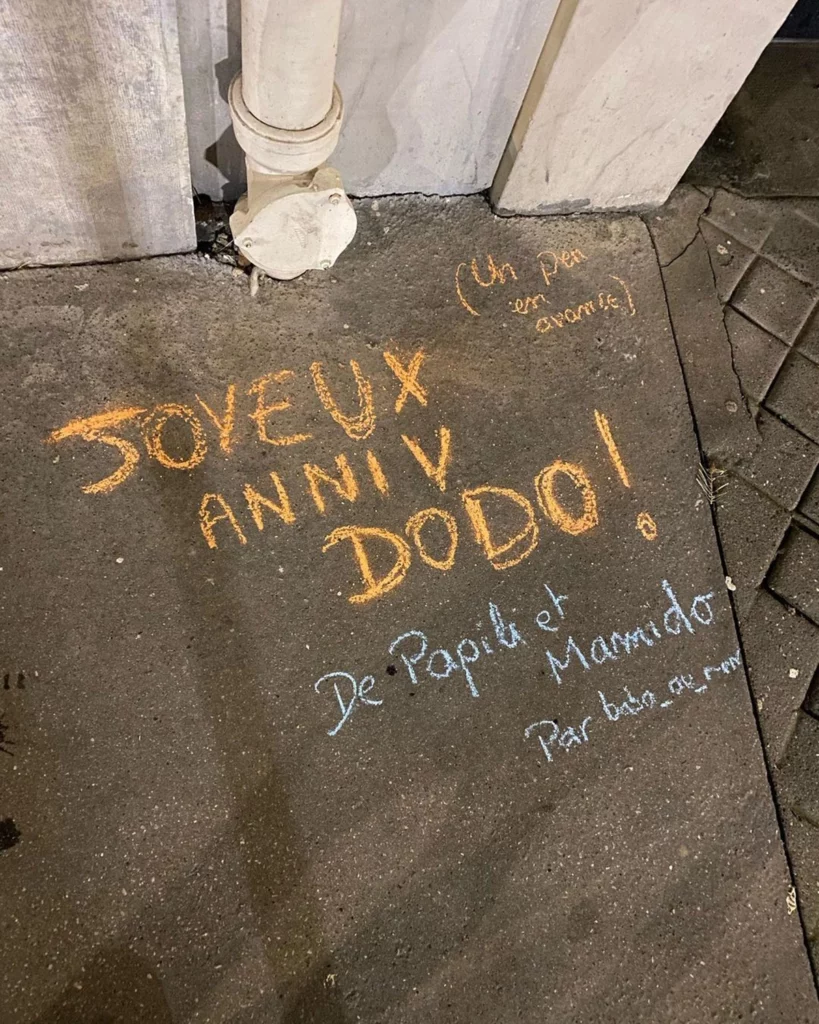 (Un peu
en
avance)
JOYEUX
ANNIV
DODO!
De Papili et
Mamido
Par